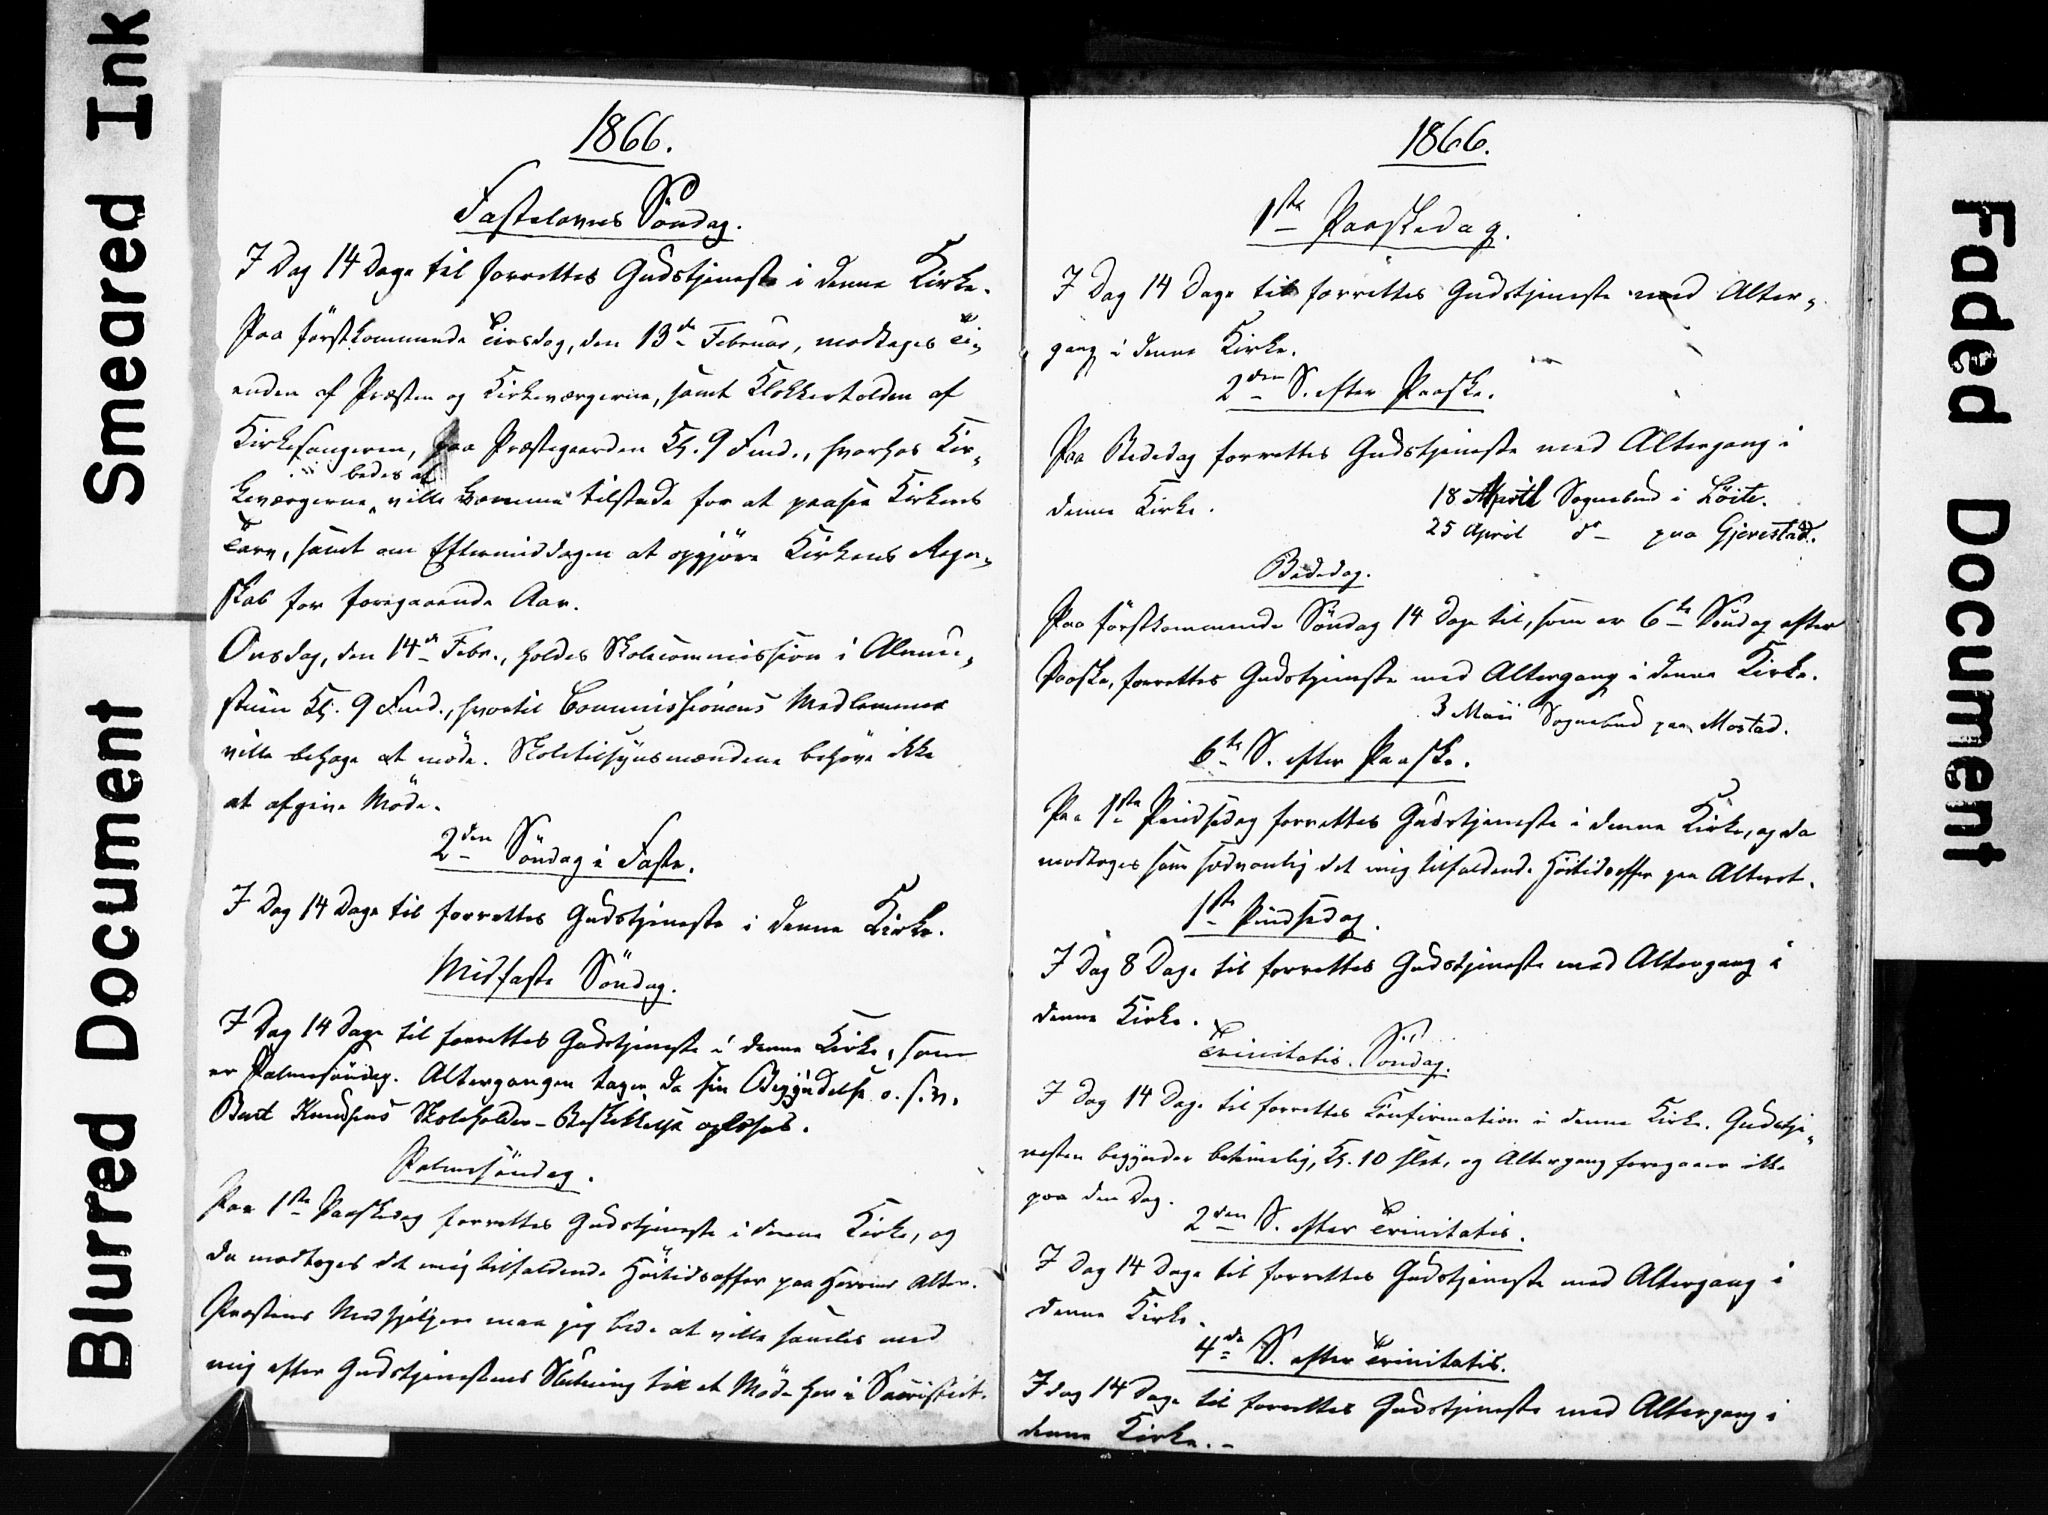 Smeared Ink
Blurred Document
1866.
Fastelavns Söndag.
I Dag 14 Dage til forrettes Gudstjeneste i denne Kirke.
Paa förstkommende Tirsdag, den 13de Februar, modtages Ti-
enden af Præsten og Kirkeværgerne, samt Klokkertolden af
Kirkesangeren, paa Præstegaarden Kl. 9 Fmd., hvorhos Kir-
bedes at
keværgerne ville komme tilstede for at paasee Kirkens
Tarv, samt om Eftermiddagen at opgjöre Kirkens Regn-
skab for foregaaende Aar.
Onsdag, den 14de Febr., holdes Skolecommission i Almue-
stuen Kl. 9 Fmd., hvortil Commissionens Medlemmer
ville behage at möde. Skoletilsynsmændene behöve ikke
at afgive Möde.
2den Söndag i Faste.
I Dag 14 Dage til forrettes Gudstjeneste i denne Kirke.
Midfaste Söndag.
I Dag 14 Dage til forrettes Gudstjeneste i denne Kirke, som
er Palmesöndag. Altergangen tager da sin Begyndelse o. s. v.
Knudsens Skoleholder-Beskikkelse oplæses.
Palmesöndag.
Paa 1ste Paaskedag forrettes Gudstjeneste i denne Kirke, og
da modtages det mig tilfaldende Höitidsoffer paa Herrens Alter.
Præstens Medhjelpere maa jeg bede at ville samles med
mig efter Gudstjenestens Slutning til et Möde her i Sacristiet.
1866.
1ste Paaskedag.
I Dag 14 Dage til forrettes Gudstjeneste med Alter-
gang i denne Kirke.
2den S. efter Paaske.
Paa Bededag forrettes Gudstjeneste med Altergang i
denne Kirke.
18 April Sognebud i Löite.
25 April do paa Gjerestad.
Bededag.
Paa förstkommende Söndag 14 Dage til, som er 6te Söndag efter
Paaske, forrettes Gudstjeneste med Altergang i denne Kirke.
3 Maii Sognebud paa Mostad.
6te S. efter Paaske.
Paa 1ste Pindsedag forrettes Gudstjeneste i denne Kirke, og da
modtages som sædvanlig det mig tilfaldende Höitidsoffer paa Alteret.
1ste Pindsedag.
I Dag 8 Dage til forrettes Gudstjeneste med Altergang i
denne Kirke.
Trinitatis Söndag.
I Dag 14 Dage til forrettes Confirmation i denne Kirke. Gudstje-
nesten begynder betimelig, Kl. 10 slet, og Altergang foregaaer ikke
paa den Dag.
2den S. efter Trinitatis.
I Dag 14 Dage til forrettes Gudstjeneste med Altergang i
denne Kirke.
4de S. efter Trinitatis.
I dag 14 Dage til forrettes Gudstjeneste med Altergang i
denne Kirke.-
Faded Document